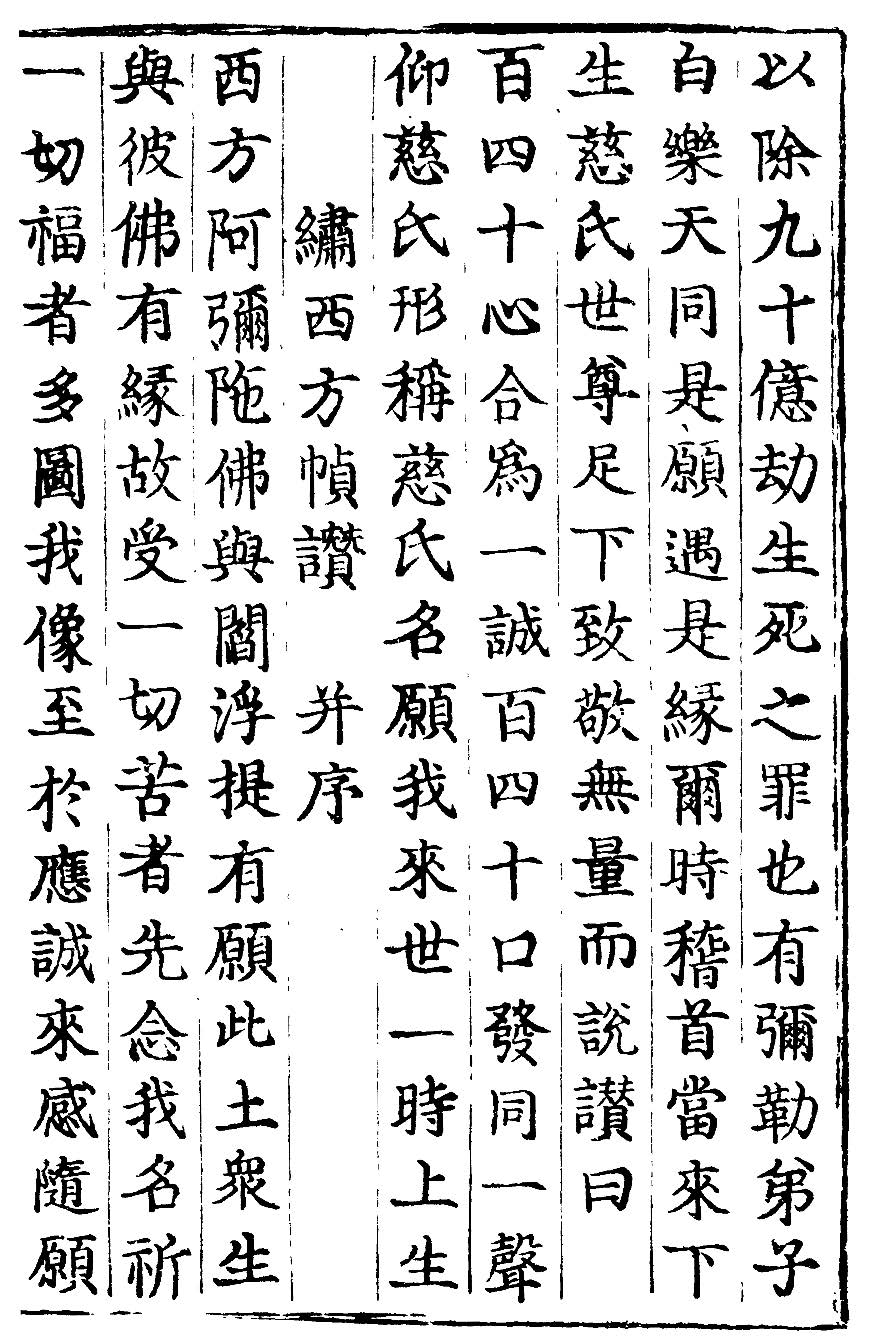 以除九十億劫生死之罪也有彌勒弟子
白樂天同是願遇是緣爾時稽首當來下
生慈氏世尊足下致敬無量而說讃曰
百四十心合爲一誠百四十口發同一聲
仰慈氏形稱慈氏名願我來世一時上生
繡西方幀讃　并序
西方阿彌陁佛與閻浮提有願此土衆生
與彼佛有緣故受一切苦者先念我名祈
一切福者多圖我像至於應誠來感隨願